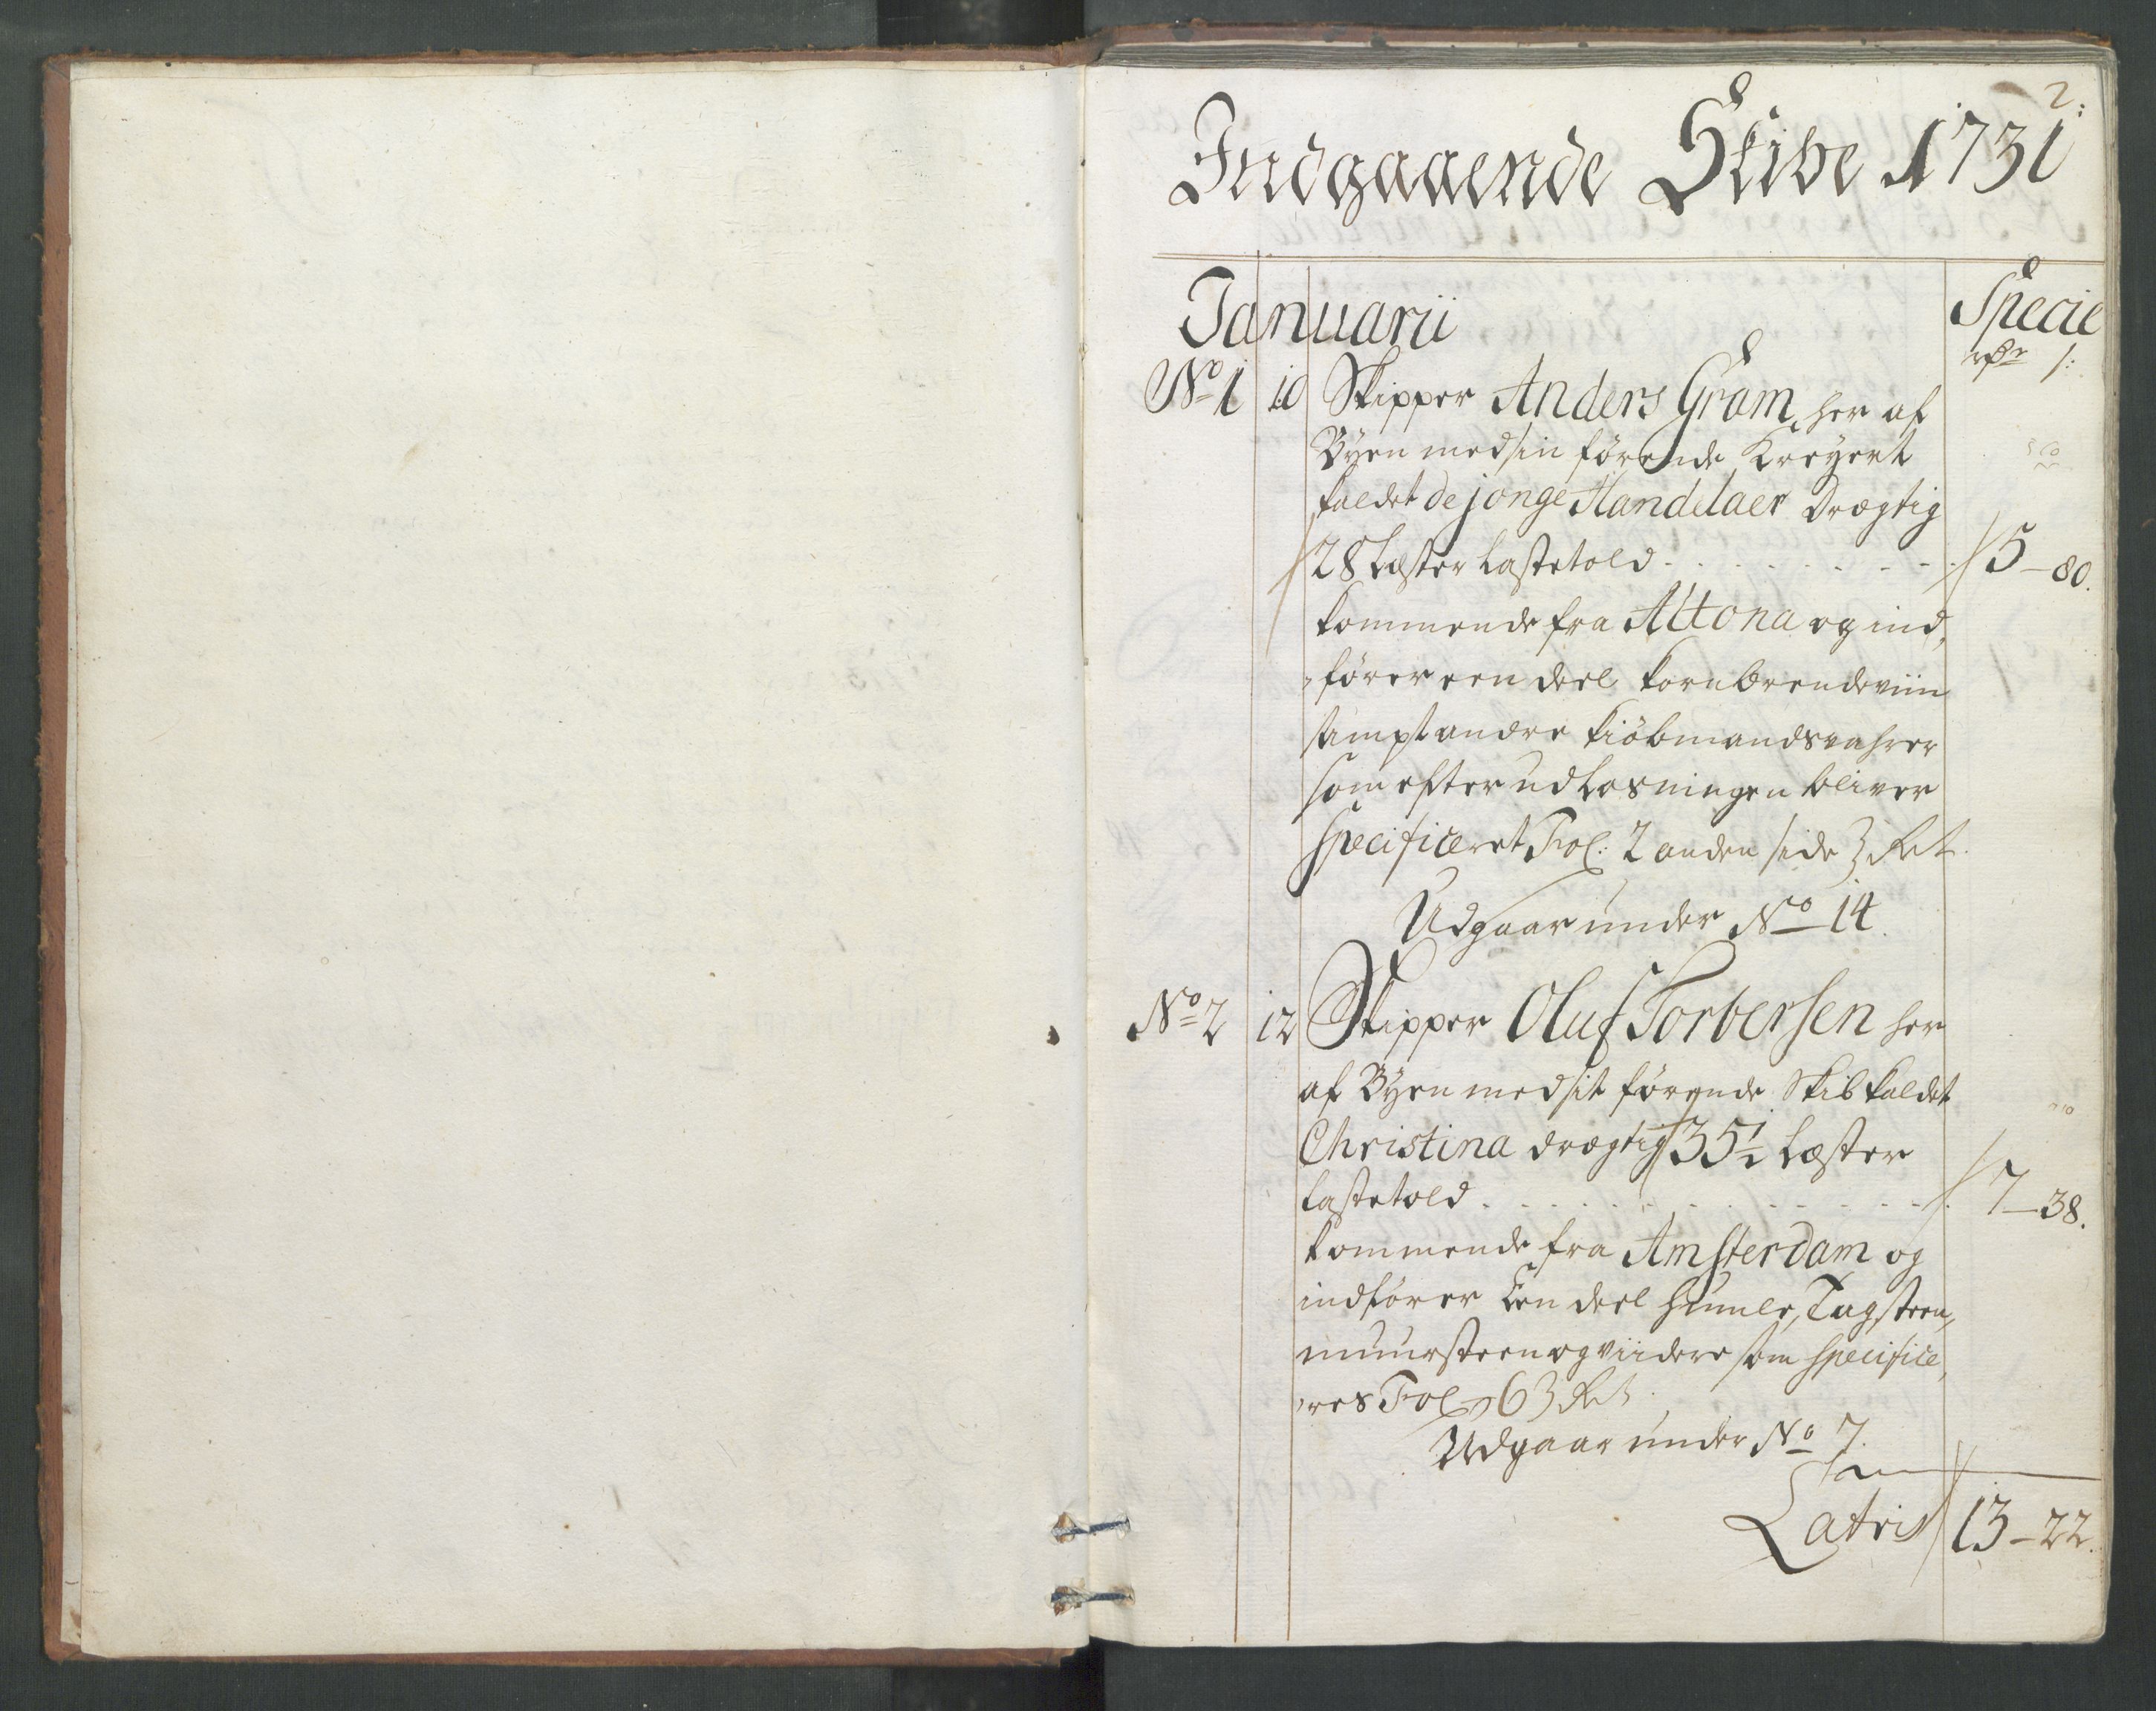 2:
Indgaaende Skibe 1731
Januarii
Specie
rdr ß:
No 1 10 Skipper Anders Gram her af
Byen med sin førende Kreyert
kaldet de jonge Handelaer drægtig
28 Læster Lastetold . . . . . . . 5 – 80.
kommende fra Altona og ind,
,fører een deel kornbrendeviin
sampt andre kiöbmandsvahrer
som efter udlosningen bliver
specificeret Fol: 2 anden side
Udgaar under No 14.
No 2 12 Skipper Oluf Torbersen her
af Byen med sit førende Skib kaldet
Christina drægtig 35½ Læster
Lastetold . . . . . . . . . . 7 – 38.
kommende fra Amsterdam og
indfører Een deel Humle, Tagsteen,
muursteen og viidere som specifice,
,res Fol
Udgaar under No 7.
Latris 13 – 22.